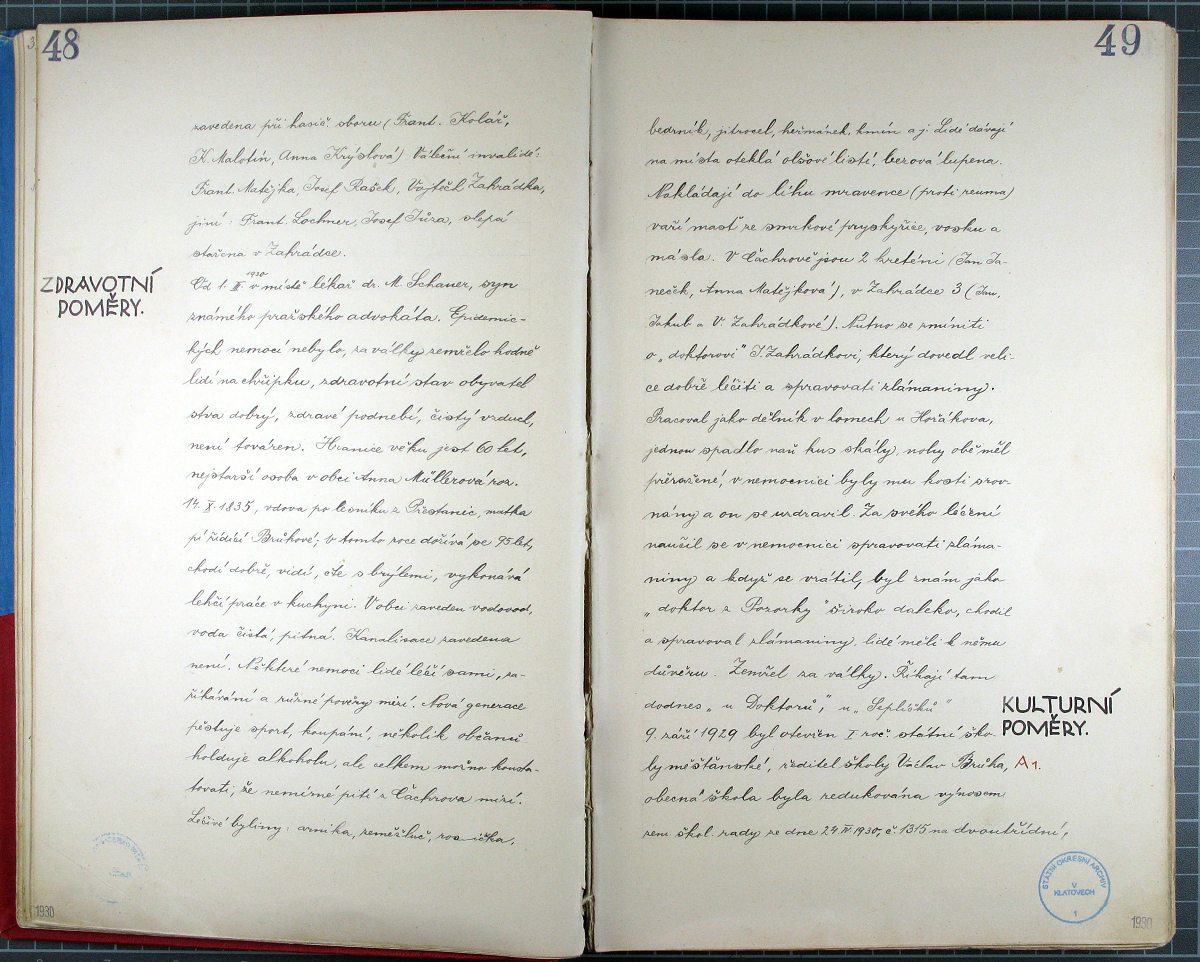 48
zavedena při hasič. sboru (Frant. Kolář,
K. Malotín, Anna Krýslová) Váleční invalidé:
Frant. Matějka, Josef Rašek, Vojtěch Zahrádka,
jiní: Frant. Lochner, Josef Tůza, slepá
stařena v Zahrádce.
ZDRAVOTNÍ
POMĚRY.
1930
Od 1. II. v místě lékař dr. M. Schauer, syn
známého pražského advokáta. Epidemic-
kých nemocí nebylo, za války zemřelo hodně
lidí na chřipku, zdravotní stav obyvatel
stva dobrý, zdravé podnebí, čistý vzduch,
není továren. Hranice věku jest 60 let,
nejstarší osoba v obci Anna Müllerová roz.
14. X. 1835, vdova po lesníku z Přestanic, matka
pí řídící Brůhové; v tomto roce dožívá se 95 let,
chodí dobře, vidí, čte s brýlemi, vykonává
lehčí práce v kuchyni. V obci zaveden vodovod,
voda čistá, pitná. Kanalisace zavedena
není. Některé nemoci lidé léčí sami, za-
říkávání a různé pověry mizí. Nová generace
pěstuje sport, koupání, několik občanů
holduje alkoholu, ale celkem možno konsta-
tovati, že nemírné pití z Čachrova mizí.
Léčivé byliny: arnika, zeměžluč, rosička,
1930
49
bedrník, jitrocel, heřmánek, kmín a j. Lidé dávají
na místa oteklá olšové listí, bezová lupena.
Nakládají do lihu mravence (proti reuma)
vaří mast ze smrkové pryskyřice, vosku a
másla. V Čachrově jsou 2 kreténi (Jan Ja-
neček, Anna Matějková), v Zahrádce 3 (Jan,
Jakub a V. Zahrádkové). Nutno se zmíniti
o „doktorovi" J. Zahrádkovi, který dovedl veli-
ce dobře léčiti a spravovati zlámaniny.
Pracoval jako dělník v lomech u Hořákova,
jednou spadlo naň kus skály, nohy obě měl
přeražené, v nemocnici byly mu kosti srov-
nány a on se uzdravil. Za svého léčení
naučil se v nemocnici spravovati zláma-
niny a když se vrátil, byl znám jako
„doktor z Pozorky" široko daleko, chodil
a spravoval zlámaniny, lidé měli k němu
důvěru. Zemřel za války. Říkají tam
dodnes „u Doktorů", u „Seplíšků"
KULTURNÍ
POMĚRY.
9. září 1929 byl otevřen I roč. státní ško-
ly měšťanské, ředitel školy Václav Brůha,
A1.
obecná škola byla redukována výnosem
zem. škol. rady ze dne 24 IV. 1930, č 1315 na dvoutřídní,
STÁTNÍ OKRESNÍ ARCHIV
V
KLATOVECH
1
1930